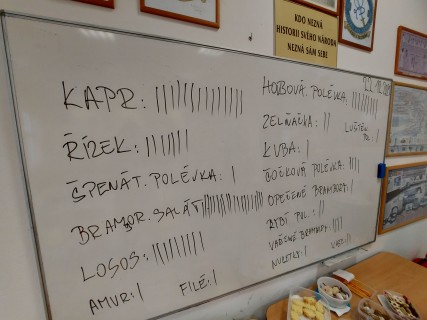 KDO NEZNÁ
HISTORII SVÉHO NÁRODA
NEZNÁ SÁM SEBE
KAPR: ||||||||||||||
ŘÍZEK: |||||||
ŠPENÁT. POLÉVKA: |
BRAMBOR. SALÁT:
LOSOS: |||||||||
AMUR: |
FILÉ: |
HOUBOVÁ POLÉVKA: ||||||||
ZELŇAČKA: ||
KUBA: |
ČOČKOVÁ POLÉVKA: ||||
OPEČENÉ BRAMBORY: |
RYBÍ POL.: ||
VAŘENÉ BRAMBORY: |||
NUGETKY: |